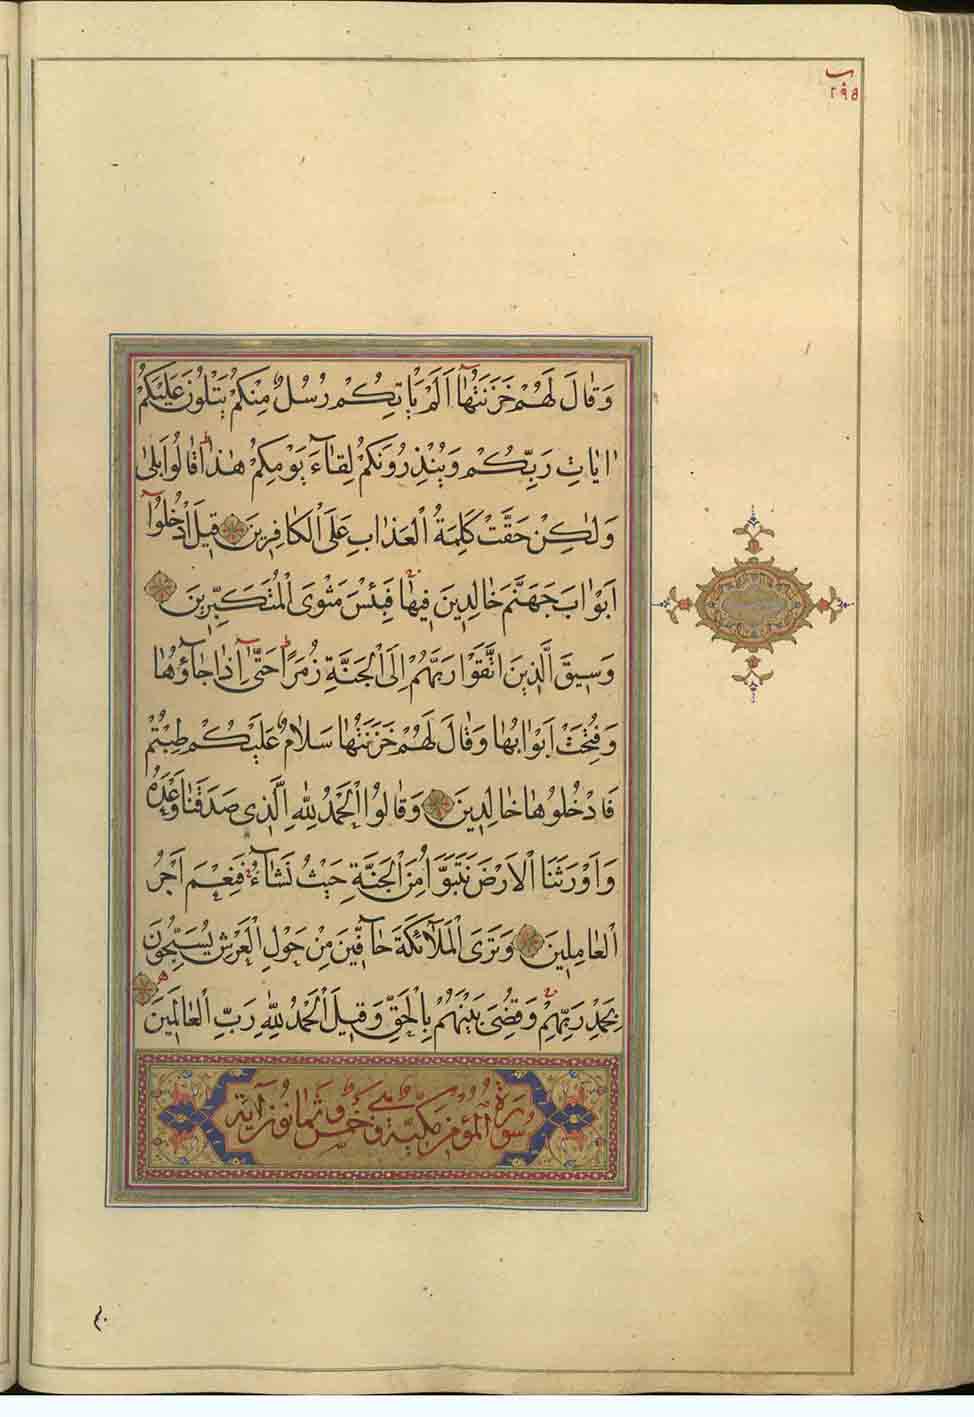 ب
٢٩٥
وَقَالَ لَهُمْ خَزَنَتُهَا اَلَمْ يَاْتِكُمْ رُسُلٌ مِنْكُمْ يَتْلُونَ عَلَيْكُمْ
اٰيَاتِ رَبِّكُمْ وَيُنْذِرُونَكُمْ لِقَآءَ يَوْمِكُمْ هٰذَا قَالُوا بَلٰى
وَلٰكِنْ حَقَّتْ كَلِمَةُ الْعَذَابِ عَلَى الْكَافِرِينَ قِيلَ ادْخُلُوٓا
اَبْوَابَ جَهَنَّمَ خَالِدِينَ فِيهَا فَبِئْسَ مَثْوَى الْمُتَكَبِّرِينَ
وَسِيقَ الَّذِينَ اتَّقَوْا رَبَّهُمْ اِلَى الْجَنَّةِ زُمَرًا حَتّٰىٓ اِذَا جَآؤُهَا
وَفُتِحَتْ اَبْوَابُهَا وَقَالَ لَهُمْ خَزَنَتُهَا سَلَامٌ عَلَيْكُمْ طِبْتُمْ
فَادْخُلُوهَا خَالِدِينَ وَقَالُوا الْحَمْدُ لِلّٰهِ الَّذِى صَدَقَنَا وَعْدَهُ
وَاَوْرَثَنَا الْاَرْضَ نَتَبَوَّاُ مِنَ الْجَنَّةِ حَيْثُ نَشَآءُ فَنِعْمَ اَجْرُ
الْعَامِلِينَ وَتَرَى الْمَلٰٓائِكَةَ حَآفِّينَ مِنْ حَوْلِ الْعَرْشِ يُسَبِّحُونَ
بِحَمْدِ رَبِّهِمْ وَقُضِىَ بَيْنَهُمْ بِالْحَقِّ وَقِيلَ الْحَمْدُ لِلّٰهِ رَبِّ الْعَالَمِينَ
سُورَةُ الْمُؤْمِنِ مَكِّيَّة وهى خمس وثمانون آية